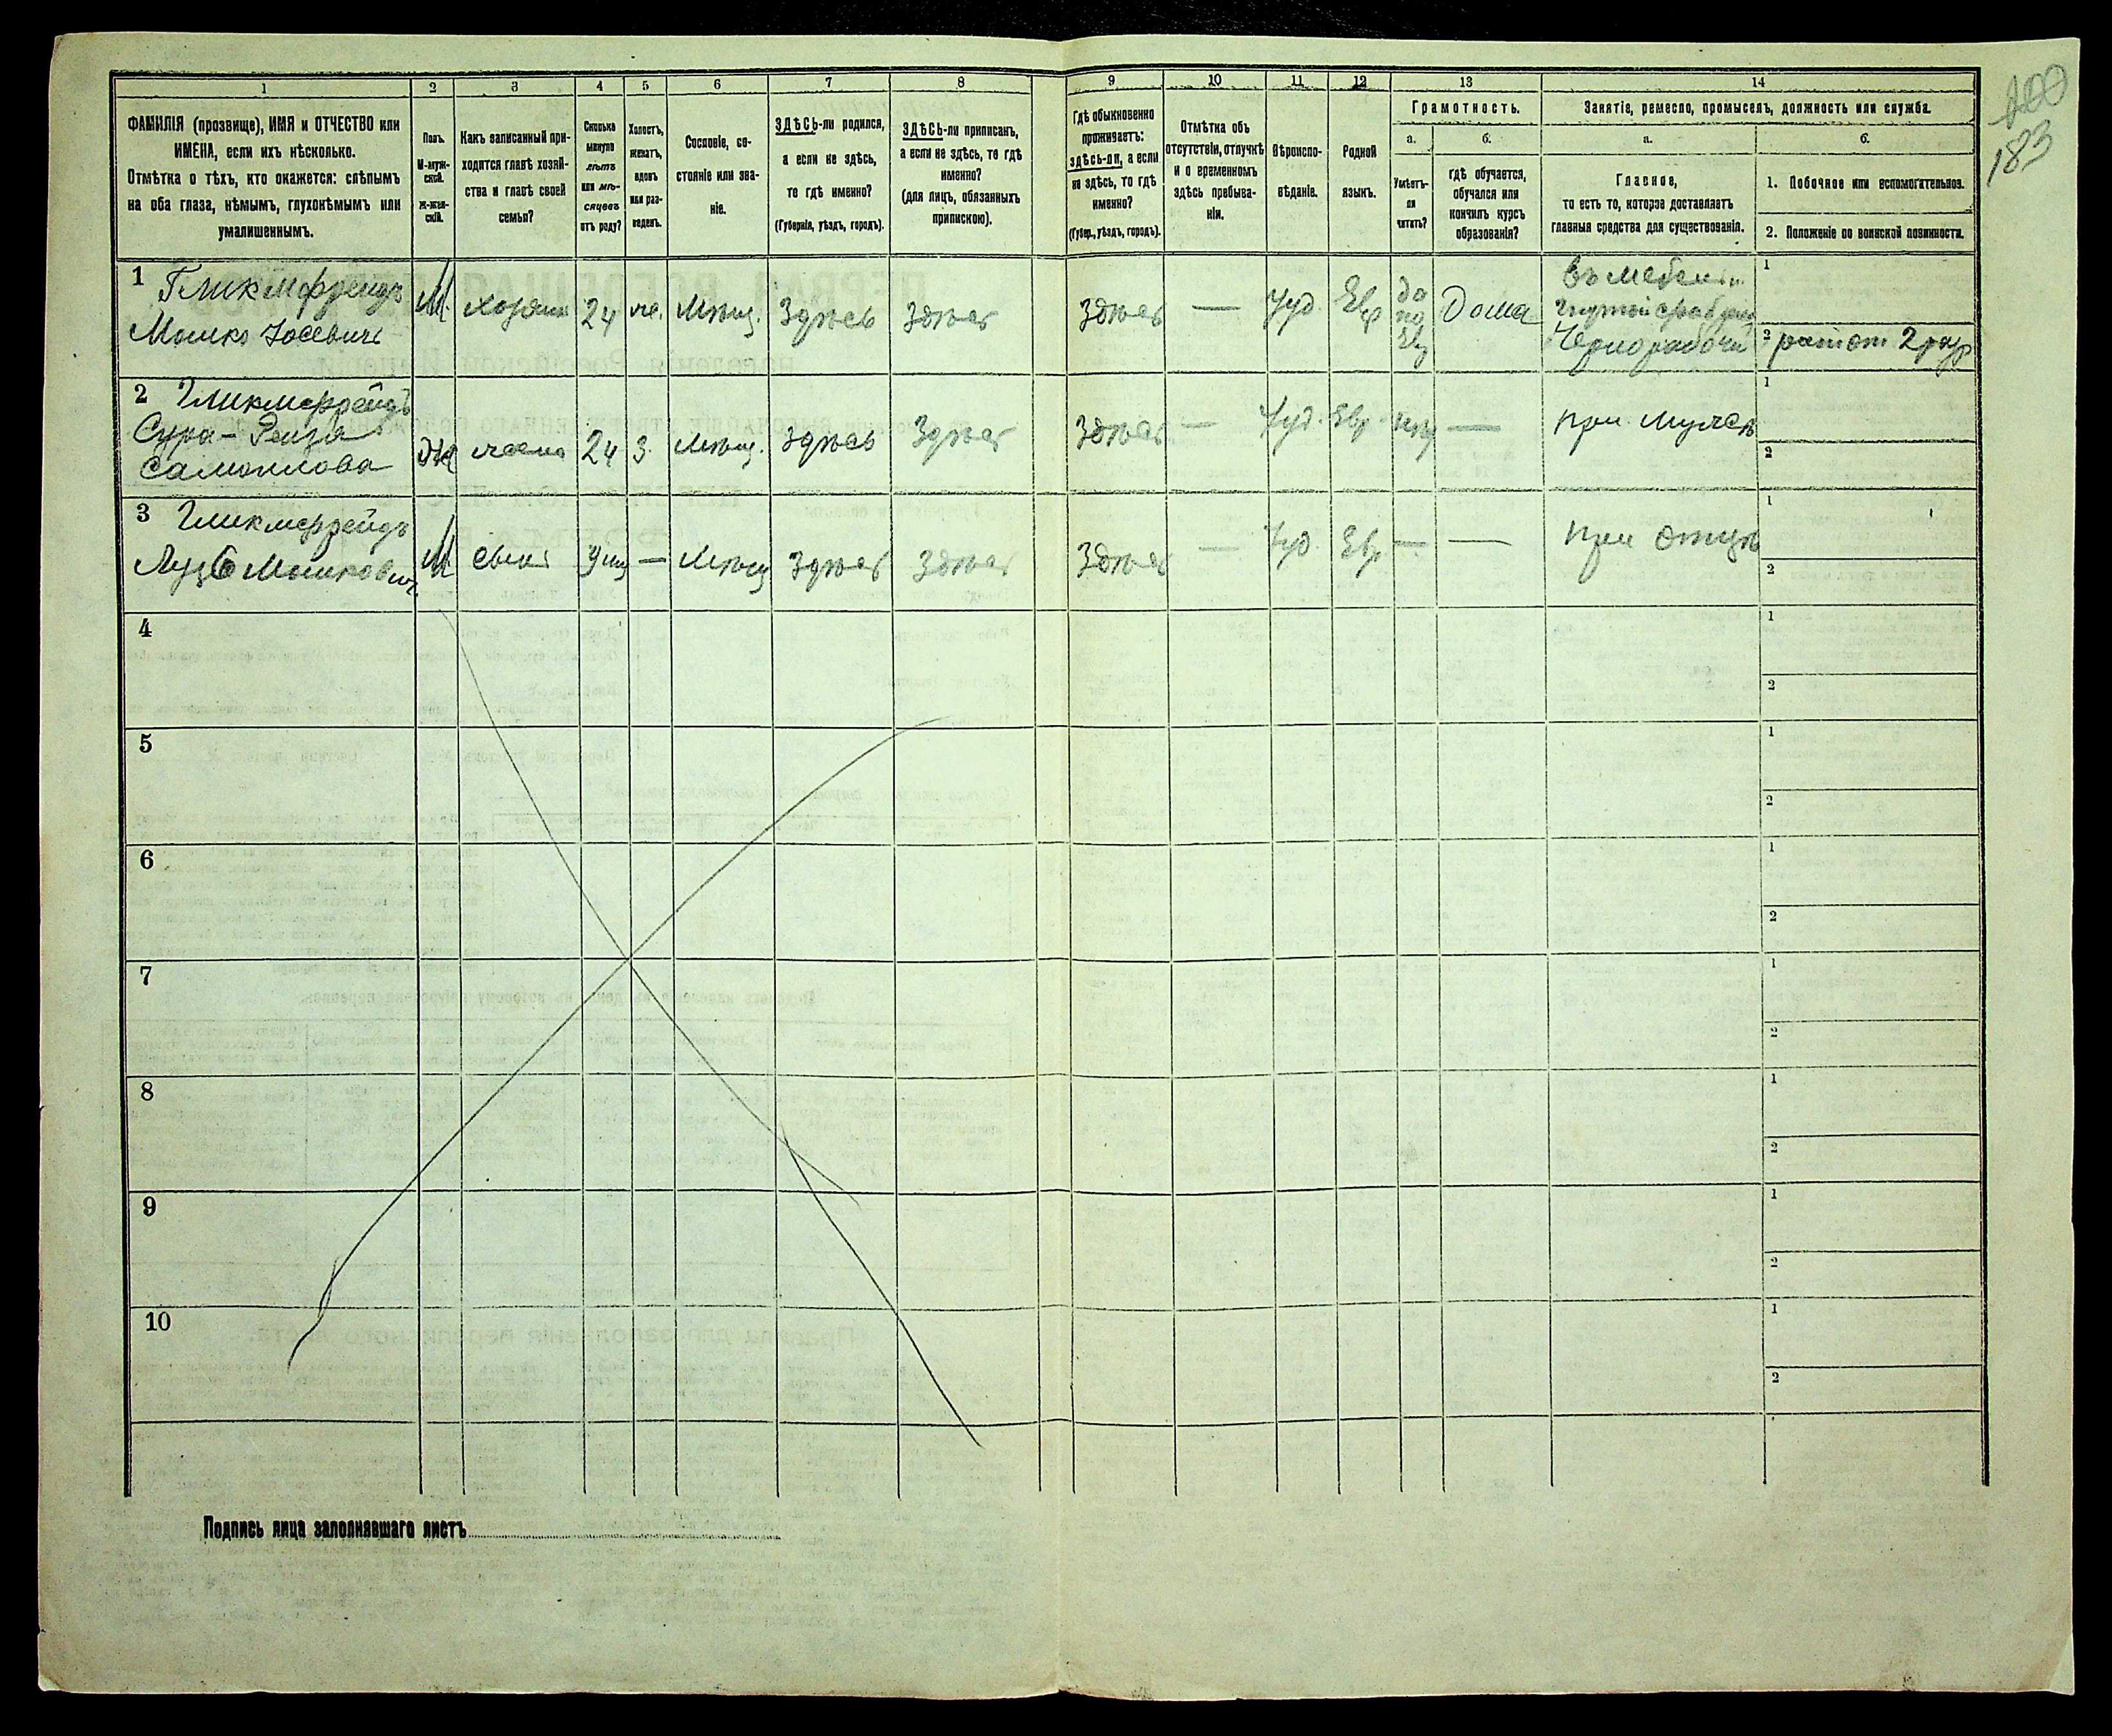 200
183
1
2
3
4
5
6
7
8
9
10
11
12
13
14
ФАМИЛІЯ (прозвище), ИМЯ и ОТЧЕСТВО или
ИМЕНА, если ихъ нѣсколько.
Отмѣтка о тѣхъ, кто окажется: слѣпымъ
на оба глаза, нѣмымъ, глухонѣмымъ или
умалишеннымъ.
Полъ.
М-муж-
ской.
Ж-жен-
скій.
Какъ записанный при-
ходится главѣ хозяй-
ства и главѣ своей
семьи?
Сколько
минуло
лѣтъ
или мѣ-
сяцевъ
отъ роду?
Холостъ,
женатъ,
вдовъ
или раз-
веденъ.
Сословіе, со-
стояніе или зва-
ніе.
ЗДѢСЬ-ли родился,
а если не здѣсь,
то гдѣ именно?
(Губернія, уѣздъ, городъ).
ЗДѢСЬ-ли приписанъ,
а если не здѣсь, то гдѣ
именно?
(для лицъ, обязанныхъ
припискою).
Гдѣ обыкновенно
проживаетъ:
здѣсь-ли, а если
не здѣсь, то гдѣ
именно?
(Губер., уѣздъ, городъ).
Отмѣтка объ
отсутствіи, отлучкѣ
и о временномъ
здѣсь пребыва-
ніи.
Вѣроиспо-
вѣданіе.
Родной
языкъ.
Грамотность.
а.
Умѣетъ-
ли
читать?
б.
гдѣ обучается,
обучался или
кончилъ курсъ
образованія?
Занятіе, ремесло, промыселъ, должность или служба.
а.
Главное,
то есть то, которое доставляетъ
главныя средства для существованія.
б.
1. Побочное или вспомогательное.
2. Положеніе по воинской повинности.
1 Гликмфрейдъ
Мошко Іосевичъ
М
хозяин
24
же.
Мѣщ.
Здѣсь
Здѣсь
Здѣсь
—
Іуд.
Евр
да
по
Евр
Дома
въ мебельн
Чернорабочи
1
2 ратот 2 раз
2 Гликмерфейдъ
Сура-Рейза
Самойлова
Ж
жена
24
З.
Мѣщ.
Здѣсь
Здѣсь
Здѣсь
—
Іуд.
Евр.
—
при мужѣ
1
2
3 Гликмерфейдъ
Лузе Мошкович
М
сынъ
9 мц
—
Мѣщ
Здѣсь
Здѣсь
Здѣсь
—
Іуд.
Евр
—
—
при отцѣ
1
2
4
1
2
5
1
2
6
1
2
7
1
2
8
1
2
9
1
2
10
1
2
Подпись лица заполнявшаго листъ